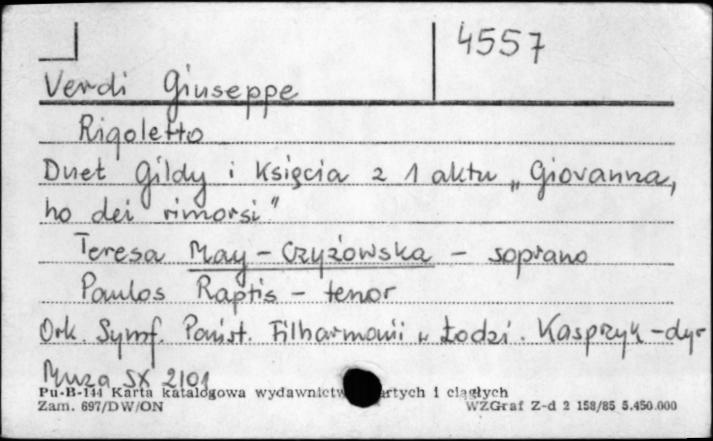 4557
Verdi Giuseppe
Rigoletto
Duet Gildy i Księcia z 1 aktu „Giovanna,
ho dei rimorsi"
Teresa May - Czyżowska - soprano
Paulos Raptis - tenor
Ork. Symf. Państ. Filharmonii w Łodzi. Kasprzyk - dyr
Muza SX 2101
Pu-B-144 Karta katalogowa wydawnictw artych i ciągłych
Zam. 697/DW/ON WZGraf Z-d 2 158/85 5.450.000